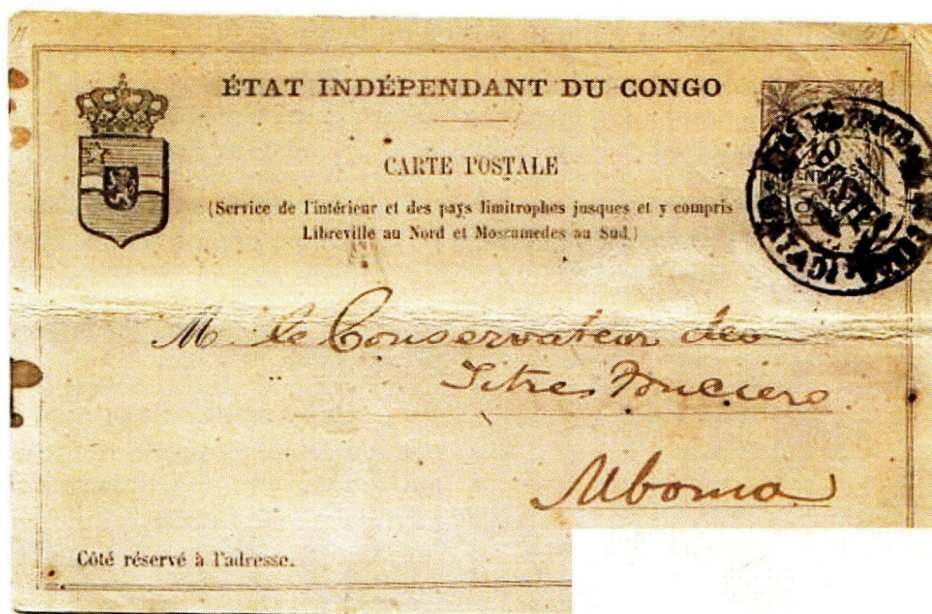 ÉTAT INDÉPENDANT DU CONGO
CARTE POSTALE
(Service de l'intérieur et des pays limitrophes jusques et y compris
Libreville au Nord et Mossamedes au Sud.)
M. le Conservateur des
Titres Fonciers
Mboma
Côté réservé à l'adresse.